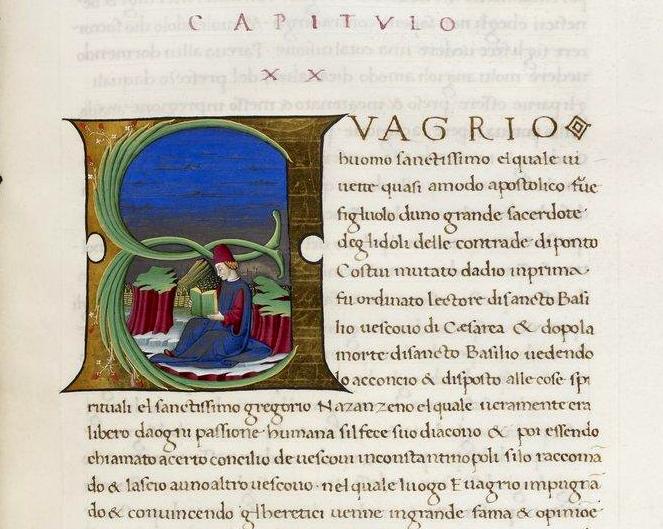 CAPITVLO
XX
EVAGRIO
huomo sanctissimo el quale ui
uette quasi amodo apostolico fue
figluolo duno grande sacerdote
deglidoli delle contrade diponto
Costui mutato dadio inprima
fu ordinato lectore disancto Basi
lio uescouo di Cæsarea & dopola
morte disancto Basilio uedendo
lo acconcio & disposto alle cose spi
rituali el sanctissimo gregorio Nazanzeno el quale ueramente era
libero daogni passione humana silfece suo diacono & poi essendo
chiamato acerto concilio de uescoui inconstantinopoli silo raccomā
do & lascio auno altro uescouo nel quale luogo Euagrio impugnā
do & conuincendo glheretici uenne ingrande fama & opinioe